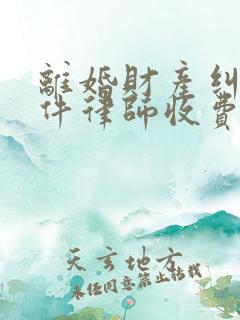 離婚財產糾
件律師收費
天言地方
未经同意禁止转载